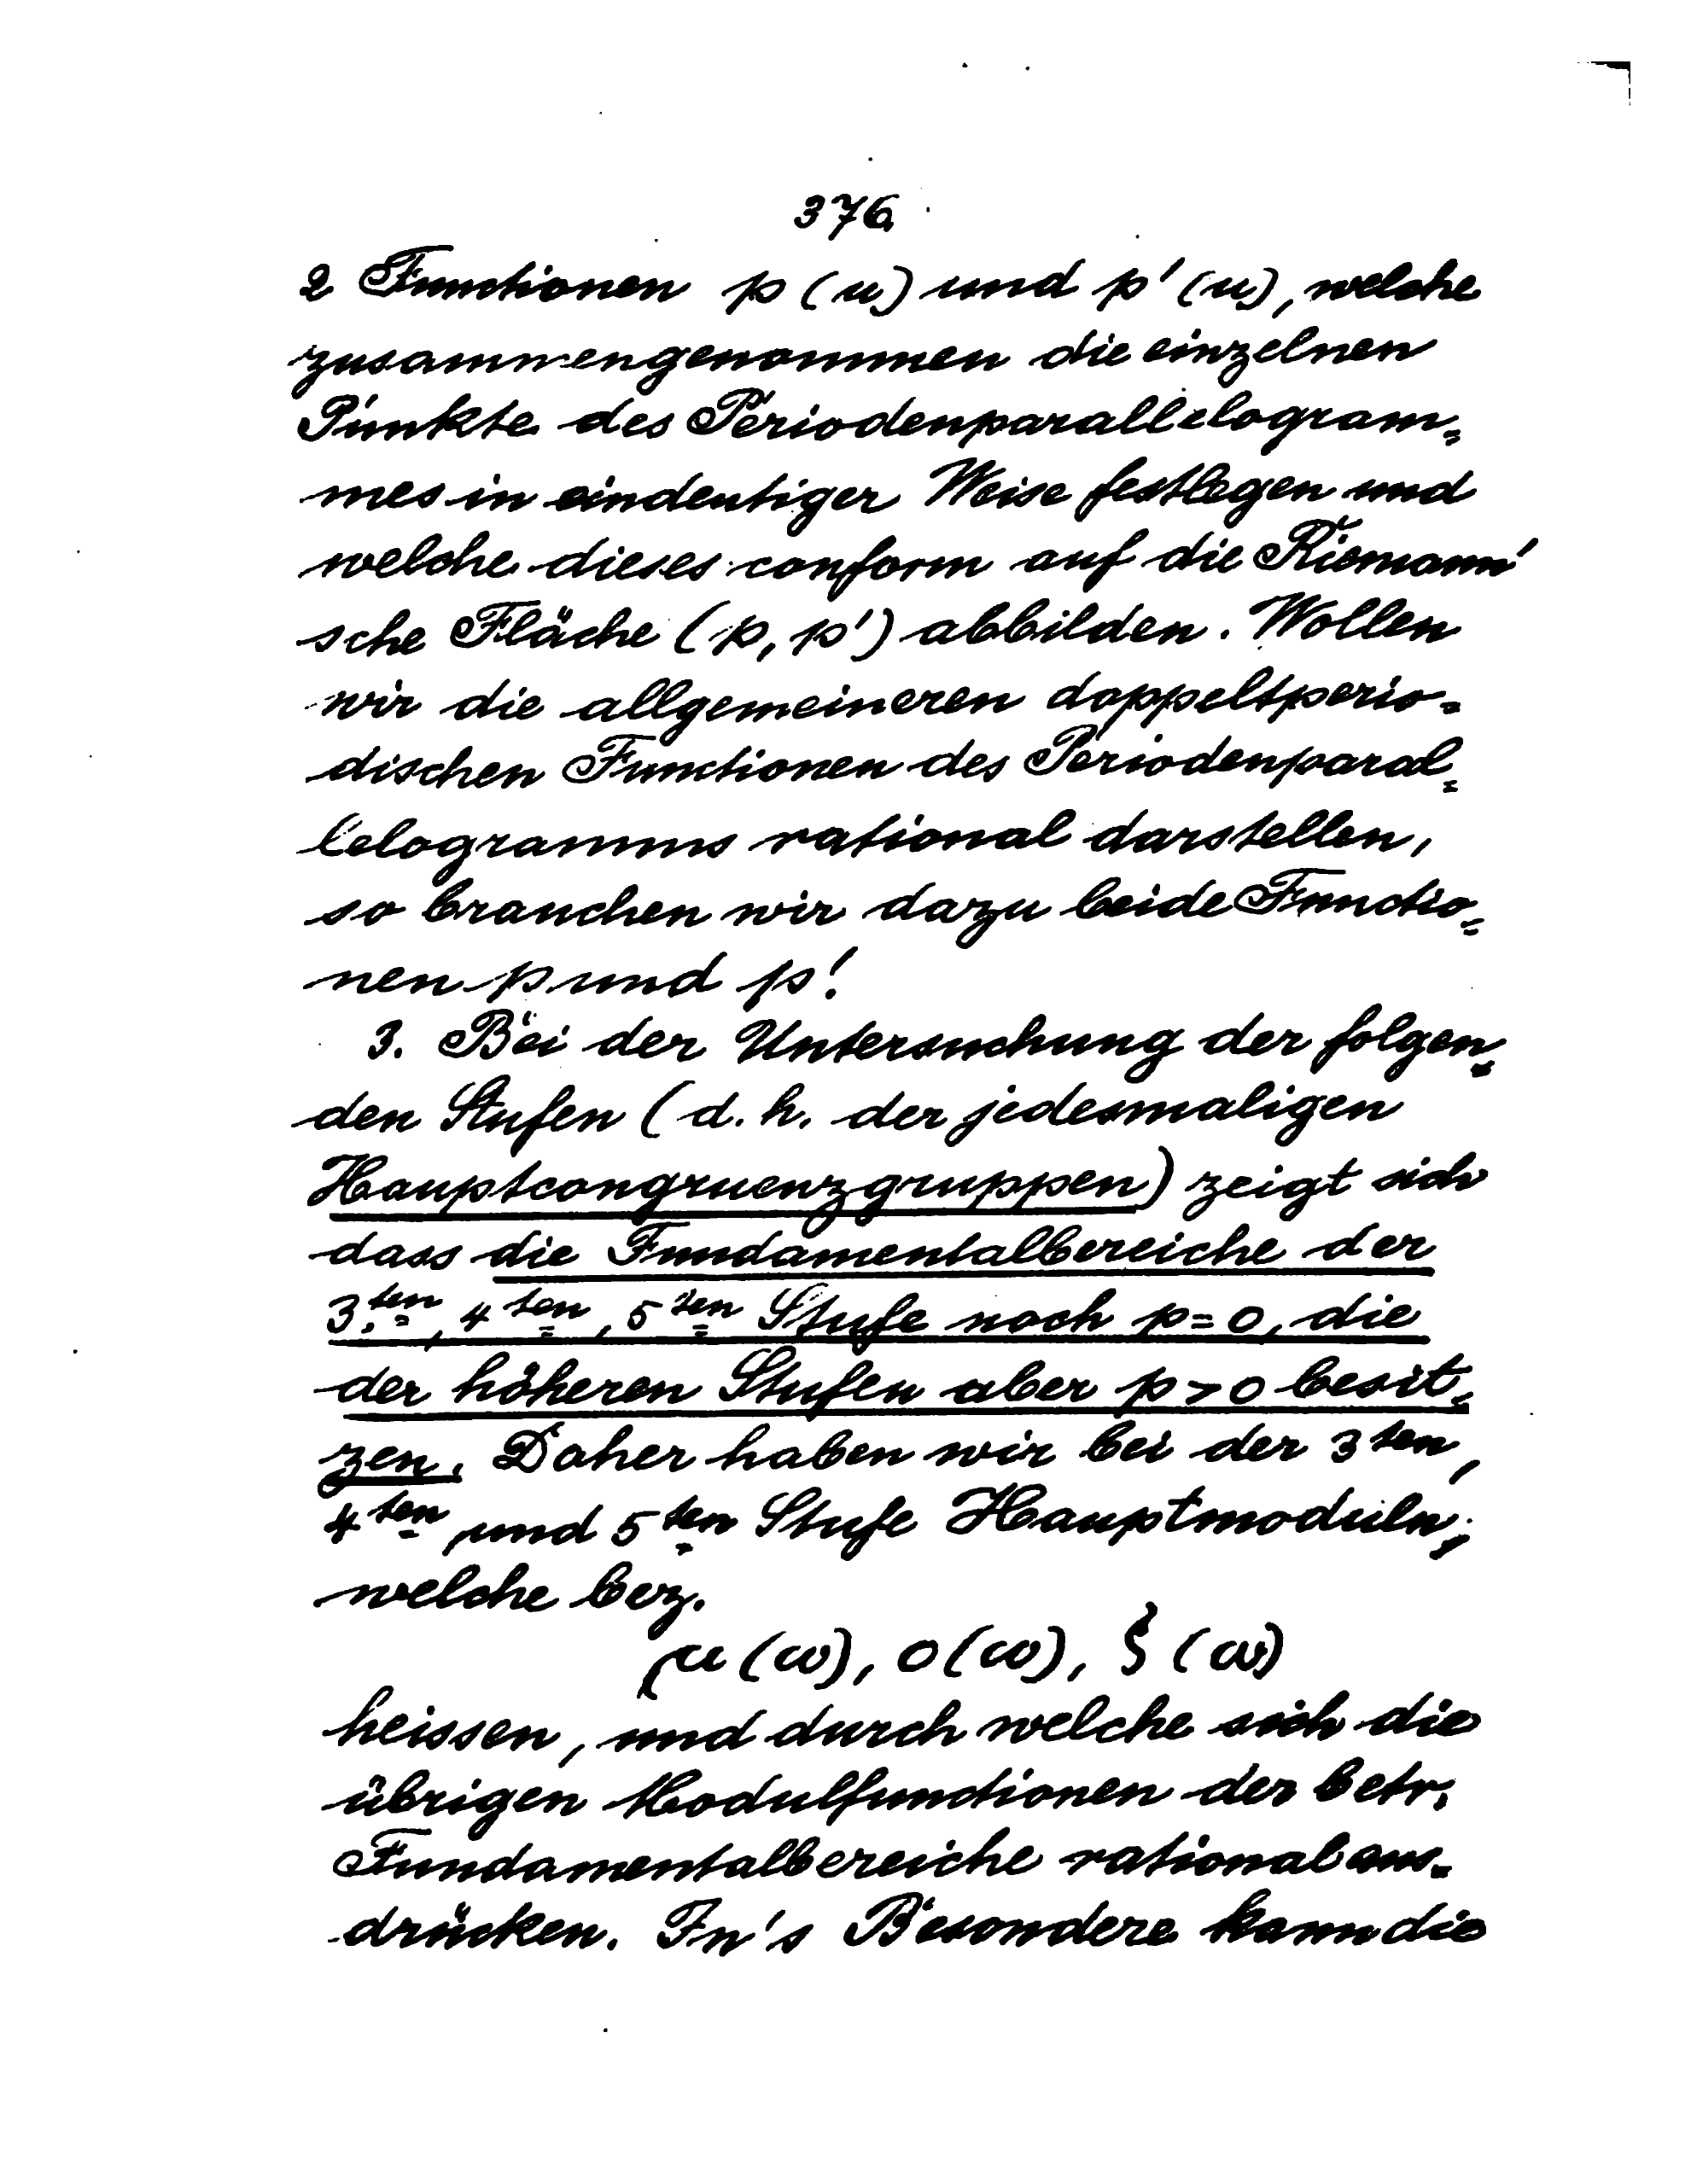 376
2 Functionen p (u) und p' (u), welche
zusammengenommen die einzelnen
Punkte des Periodenparallelogram=
mes in eindeutiger Weise festlegen und
welche dieses conform auf die Riemann'
sche Fläche (p, p') abbilden. Wollen
wir die allgemeineren doppeltperio=
dischen Functionen des Periodenparal=
lelogramms rational darstellen,
so brauchen wir dazu beide Functio=
nen p und p'.
3. Bei der Untersuchung der folgen=
den Stufen (d. h. der jedesmaligen
Hauptcongruenzgruppen) zeigt sich
dass die Fundamentalbereiche der
3.ten, 4ten, 5ten Stufe noch p = 0, die
der höheren Stufen aber p > 0 besit=
zen. Daher haben wir bei der 3ten,
4ten und 5ten Stufe Hauptmoduln,
welche bez.
μ (ω), o (ω), ζ (ω)
heissen, und durch welche sich die
übrigen Modulfunctionen der betr.
Fundamentalbereiche rational aus=
drücken. In's Besondere kann die